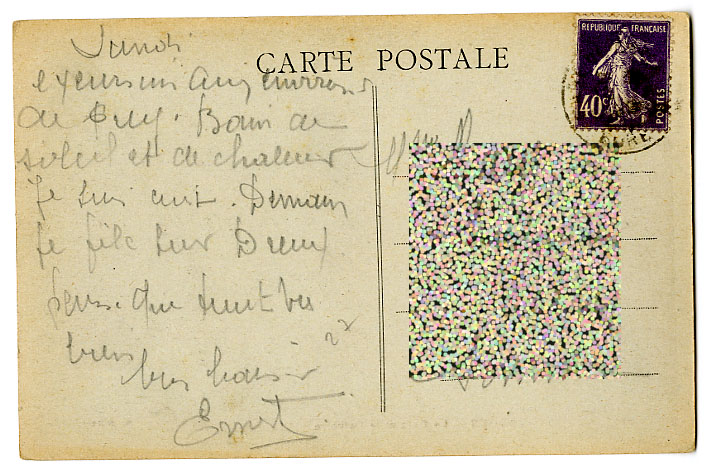 Lundi
CARTE POSTALE
excursion aux environs
de Puy. Bain de
soleil et de chaleur
Je suis cuit. Demain
Je file sur Dreux
pense que tout va
bien
bon baiser
Ernest
REPUBLIQUE FRANÇAISE
40c
POSTES